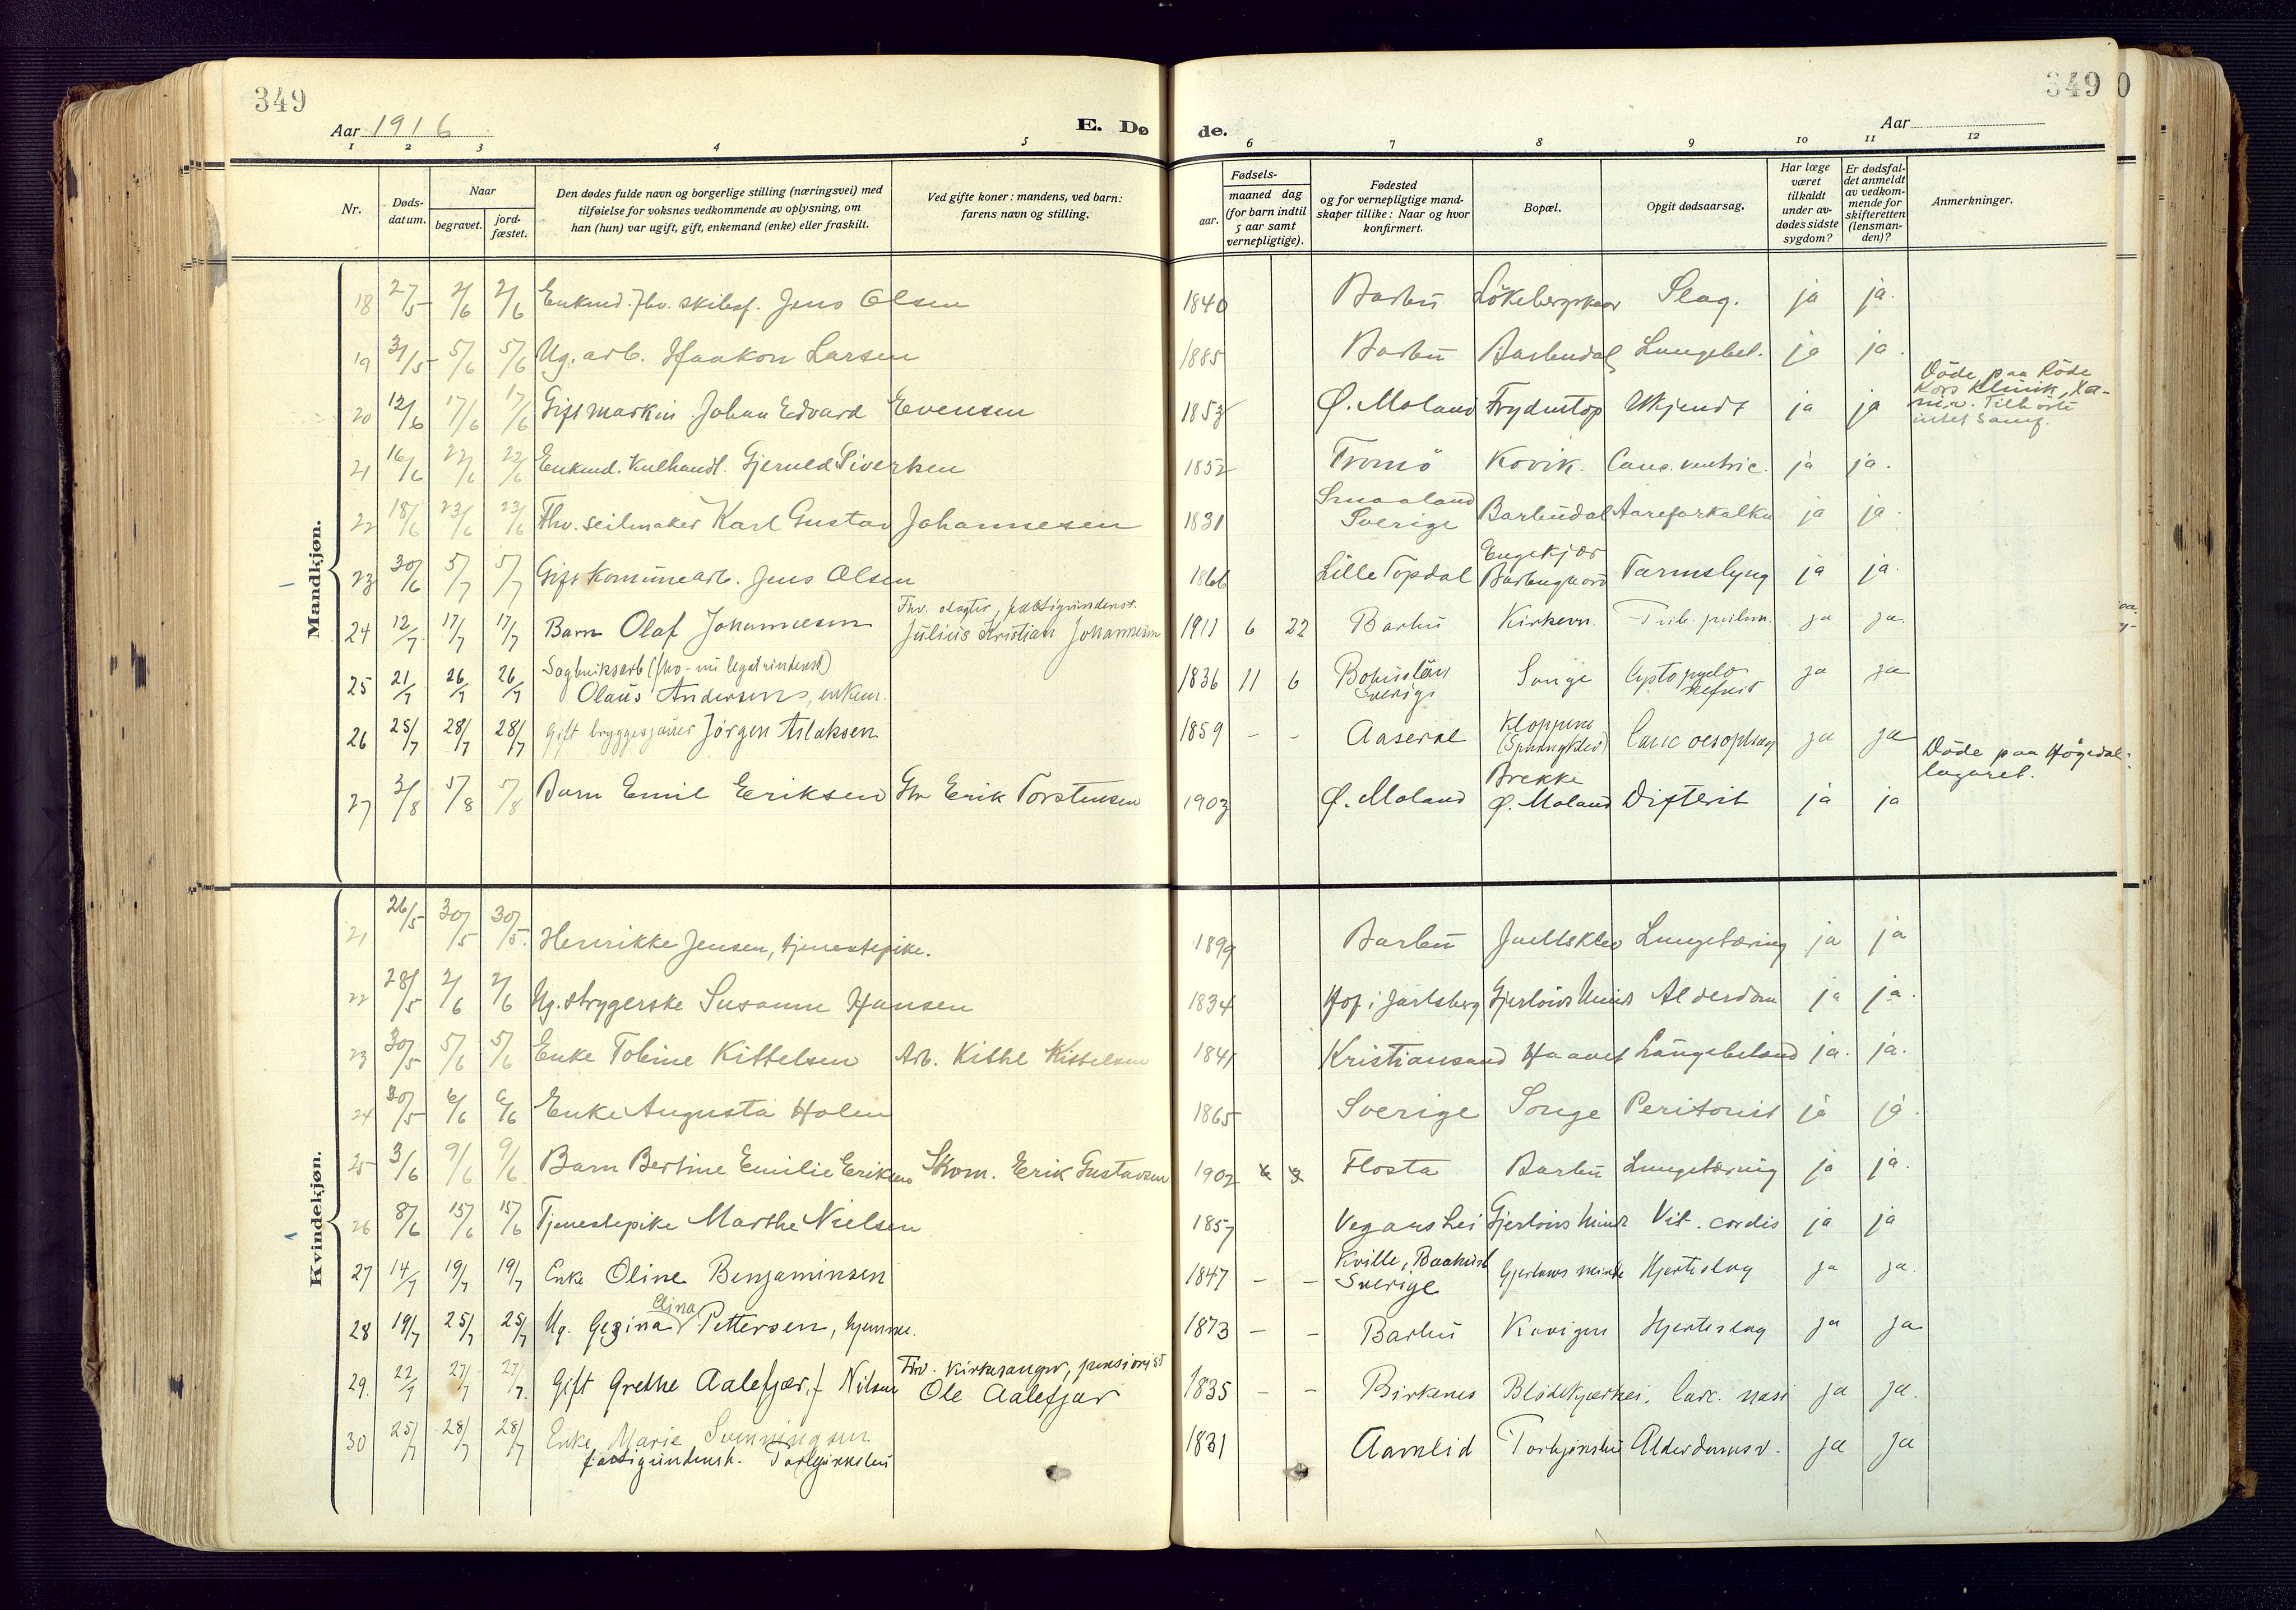 349
349
0
Aar 1916
E. Dø
de.
Aar
1 2 3 4 5 6 7 8 9 10 11 12
Nr.
Døds-
datum.
Naar
begravet.
jord-
fæstet.
Den dødes fulde navn og borgerlige stilling (næringsvei) med
tilføielse for voksnes vedkommende av oplysning, om
han (hun) var ugift, gift, enkemand (enke) eller fraskilt.
Ved gifte koner: mandens, ved barn:
farens navn og stilling.
Fødsels-
aar.
maaned dag
(for barn indtil
5 aar samt
vernepligtige).
Fødested
og for vernepligtige mand-
skaper tillike: Naar og hvor
konfirmert.
Bopæl.
Opgit dødsaarsag.
Har læge
været
tilkaldt
under av-
dødes sidste
sygdom?
Er dødsfal-
det anmeldt
av vedkom-
mende for
skifteretten
(lensman-
den)?
Anmerkninger.
Mandkjøn.
18 27/5 2/6 2/6 Enkmd. fhv. skibsf. Jens Olsen 1840 Barbu Slag. ja ja.
19 31/5 5/6 5/6 Ug. arb. Haakon Larsen 1885 Barbu Barbudal Lungebet. ja ja.
20 12/6 17/6 17/6 Gift maskin. Johan Edvard Evensen 1853 Ø. Moland Frydentop Ukjendt ja ja
Døde paa Røde
Kors Klinik, Xa-
nia. Tilhørte
intet samf.
21 16/6 22/6 22/6 Enkmd. Kulhandl. Gjerued Sivertsen 1852 Tromö Kovik. Canc. ventric. ja ja.
22 18/6 23/6 23/6 Fhv. seilmaker Karl Gustav Johannesen 1831 Smaaland
Sverige Barbudal Aareforkalkn ja ja.
23 30/6 5/7 5/7 Gift Komunearb. Jens Olsen 1866 Lille Topdal Engekjær
Barbugaard Tarmslyng ja ja.
24 12/7 17/7 17/7 Barn Olaf Johannesen Fhv. slagter, fattigunderst.
Julius Kristian Johannesen 1911 6 22 Barbu Kirkevn. ja ja.
25 21/7 26/7 26/7 Sagbruksarb (fhv- nu legatunderst)
Olaus Andersen, enkem. 1836 11 6 Bohuslän
Sverige Songe Cystopyelo
nefrit ja ja
26 25/7 28/7 28/7 gift bryggesjauer Jørgen Aslaksen 1859 - - Aaseral Kloppene
Canc oesophag ja ja
27 3/8 5/8 5/8 Barn Emil Eriksen Erik Torstensen 1903 Ø. Moland Brekke
Ø. Moland Difterit ja ja
Døde paa Høgedal-
lazaret.
Kvindekjøn.
21 26/5 30/5 30/5. Henrikke Jensen, tjenestepike. 1899 Barbu Juellsklev Lungetæring ja ja
22 28/5 2/6 2/6 Ug. strygerske Susanne Hansen 1834 Hof i Jarlsberg Gjerløws Minde Alderdom ja ja.
23 30/5 5/6 5/6 Enke Tobine Kittelsen Arb. Kittel Kittelsen 1841 Kristiansand Haavet Lungebetænd ja. ja.
24 30/5 6/6 6/6 Enke Augusta Holm 1865 Sverige Songe Peritonit ja ja.
25 3/6 9/6 9/6 Barn Bertine Emilie Eriksen Skom. Erik Gustavsen 1902 Flosta Barbu Lungetæring ja ja.
26 8/6 15/6 15/6 Tjenestepike Marthe Nielsen 1857 Vegarshei Gjerløws Minde Vit. cordis ja ja
27 14/7 19/7 19/7 Enke Oline Benjaminsen 1847 - - Kville, Baahusl
Sverige Gjerløws minde Hjerteslag ja ja.
28 19/7 25/7 25/7 Ug. Gezina Aina Pettersen, hjemme. 1873 - - Barbu Kuvigen Hjerteslag ja ja
29. 22/7 27/7 27/7. Gift Grethe Aalefjær, f Nilsen Fhv. kirkesanger, pensionist
Ole Aalefjær 1835 - - Birkenes Blødekjærhei. Carc. nasi ja ja.
30 25/7 28/7 28/7 Enke Marie Svenningsen
fattigunderst. Torbjørnsbu 1831 Aamlid Torbjørnsbu Alderdomssv. ja ja